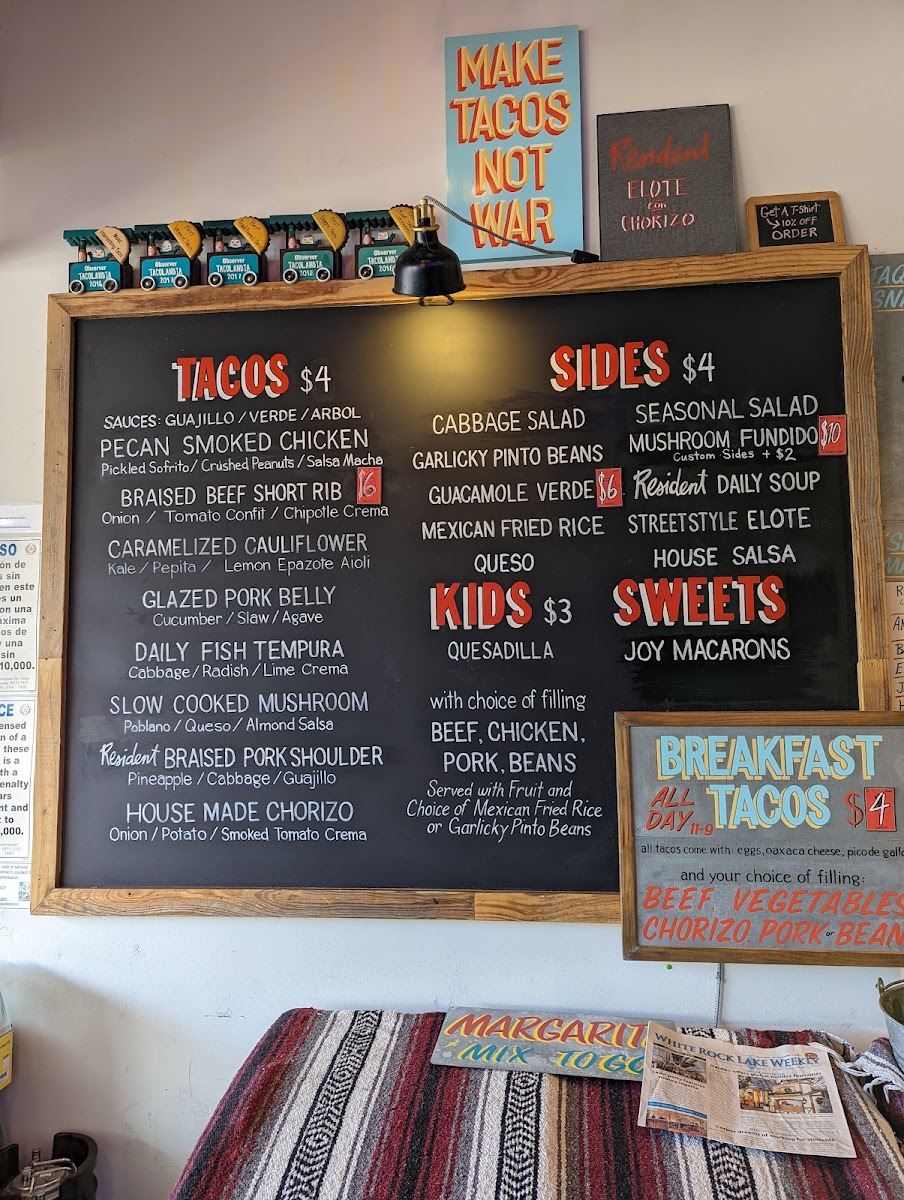 MAKE
TACOS
NOT
WAR
Resident
ELOTE
con
CHORIZO
Get A T-Shirt
10% OFF
ORDER
Observer
TACOLANDIA
2016
Observer
TACOLANDIA
2017
Observer
TACOLANDIA
2017
Observer
TACOLANDIA
2018
Observer
TACOLANDIA
TACOS $4
SAUCES: GUAJILLO / VERDE / ARBOL
PECAN SMOKED CHICKEN
Pickled Sofrito / Crushed Peanuts / Salsa Macha
BRAISED BEEF SHORT RIB $6
Onion / Tomato Confit / Chipotle Crema
CARAMELIZED CAULIFLOWER
Kale / Pepita / Lemon Epazote Aioli
GLAZED PORK BELLY
Cucumber / Slaw / Agave
DAILY FISH TEMPURA
Cabbage / Radish / Lime Crema
SLOW COOKED MUSHROOM
Poblano / Queso / Almond Salsa
Resident BRAISED PORK SHOULDER
Pineapple / Cabbage / Guajillo
HOUSE MADE CHORIZO
Onion / Potato / Smoked Tomato Crema
SIDES $4
CABBAGE SALAD
GARLICKY PINTO BEANS
GUACAMOLE VERDE $6
MEXICAN FRIED RICE
QUESO
SEASONAL SALAD
MUSHROOM FUNDIDO $10
Custom Sides + $2
Resident DAILY SOUP
STREETSTYLE ELOTE
HOUSE SALSA
KIDS $3
QUESADILLA
with choice of filling
BEEF, CHICKEN,
PORK, BEANS
Served with Fruit and
Choice of Mexican Fried Rice
or Garlicky Pinto Beans
SWEETS
JOY MACARONS
BREAKFAST
TACOS $4
ALL
DAY 11-9
all tacos come with: eggs, oaxaca cheese, pico de gallo
and your choice of filling:
BEEF, VEGETABLES
CHORIZO, PORK or BEAN
MARGARIT
MIX TO GO
WHITE ROCK LAKE WEEKLY